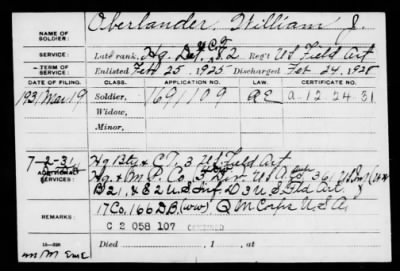 NAME OF SOLDIER: Oberlander, William J.
SERVICE: Late rank, Hq. Det. & C.T. 3, F.2. Reg't US Field Art
TERM OF SERVICE: Enlisted Feb 25, 1925 Discharged Feb. 24, 1928
DATE OF FILING. CLASS. APPLICATION NO. LAW CERTIFICATE NO.
1931 Mar. 19 Soldier, 1691109 a.12.24.31
Widow,
Minor,
7-2-31
ADDITIONAL SERVICES: Hq Btry & C.T. 3 US Field Art.
Hq. & M.P. Co. 3
B 21, & E 2 U.S. Inf. D 3 U.S. Fld Art.
REMARKS: 17 Co. 166 D.B. (ww) Q M Corps U S A
C 2 058 107
Died , 1 , at